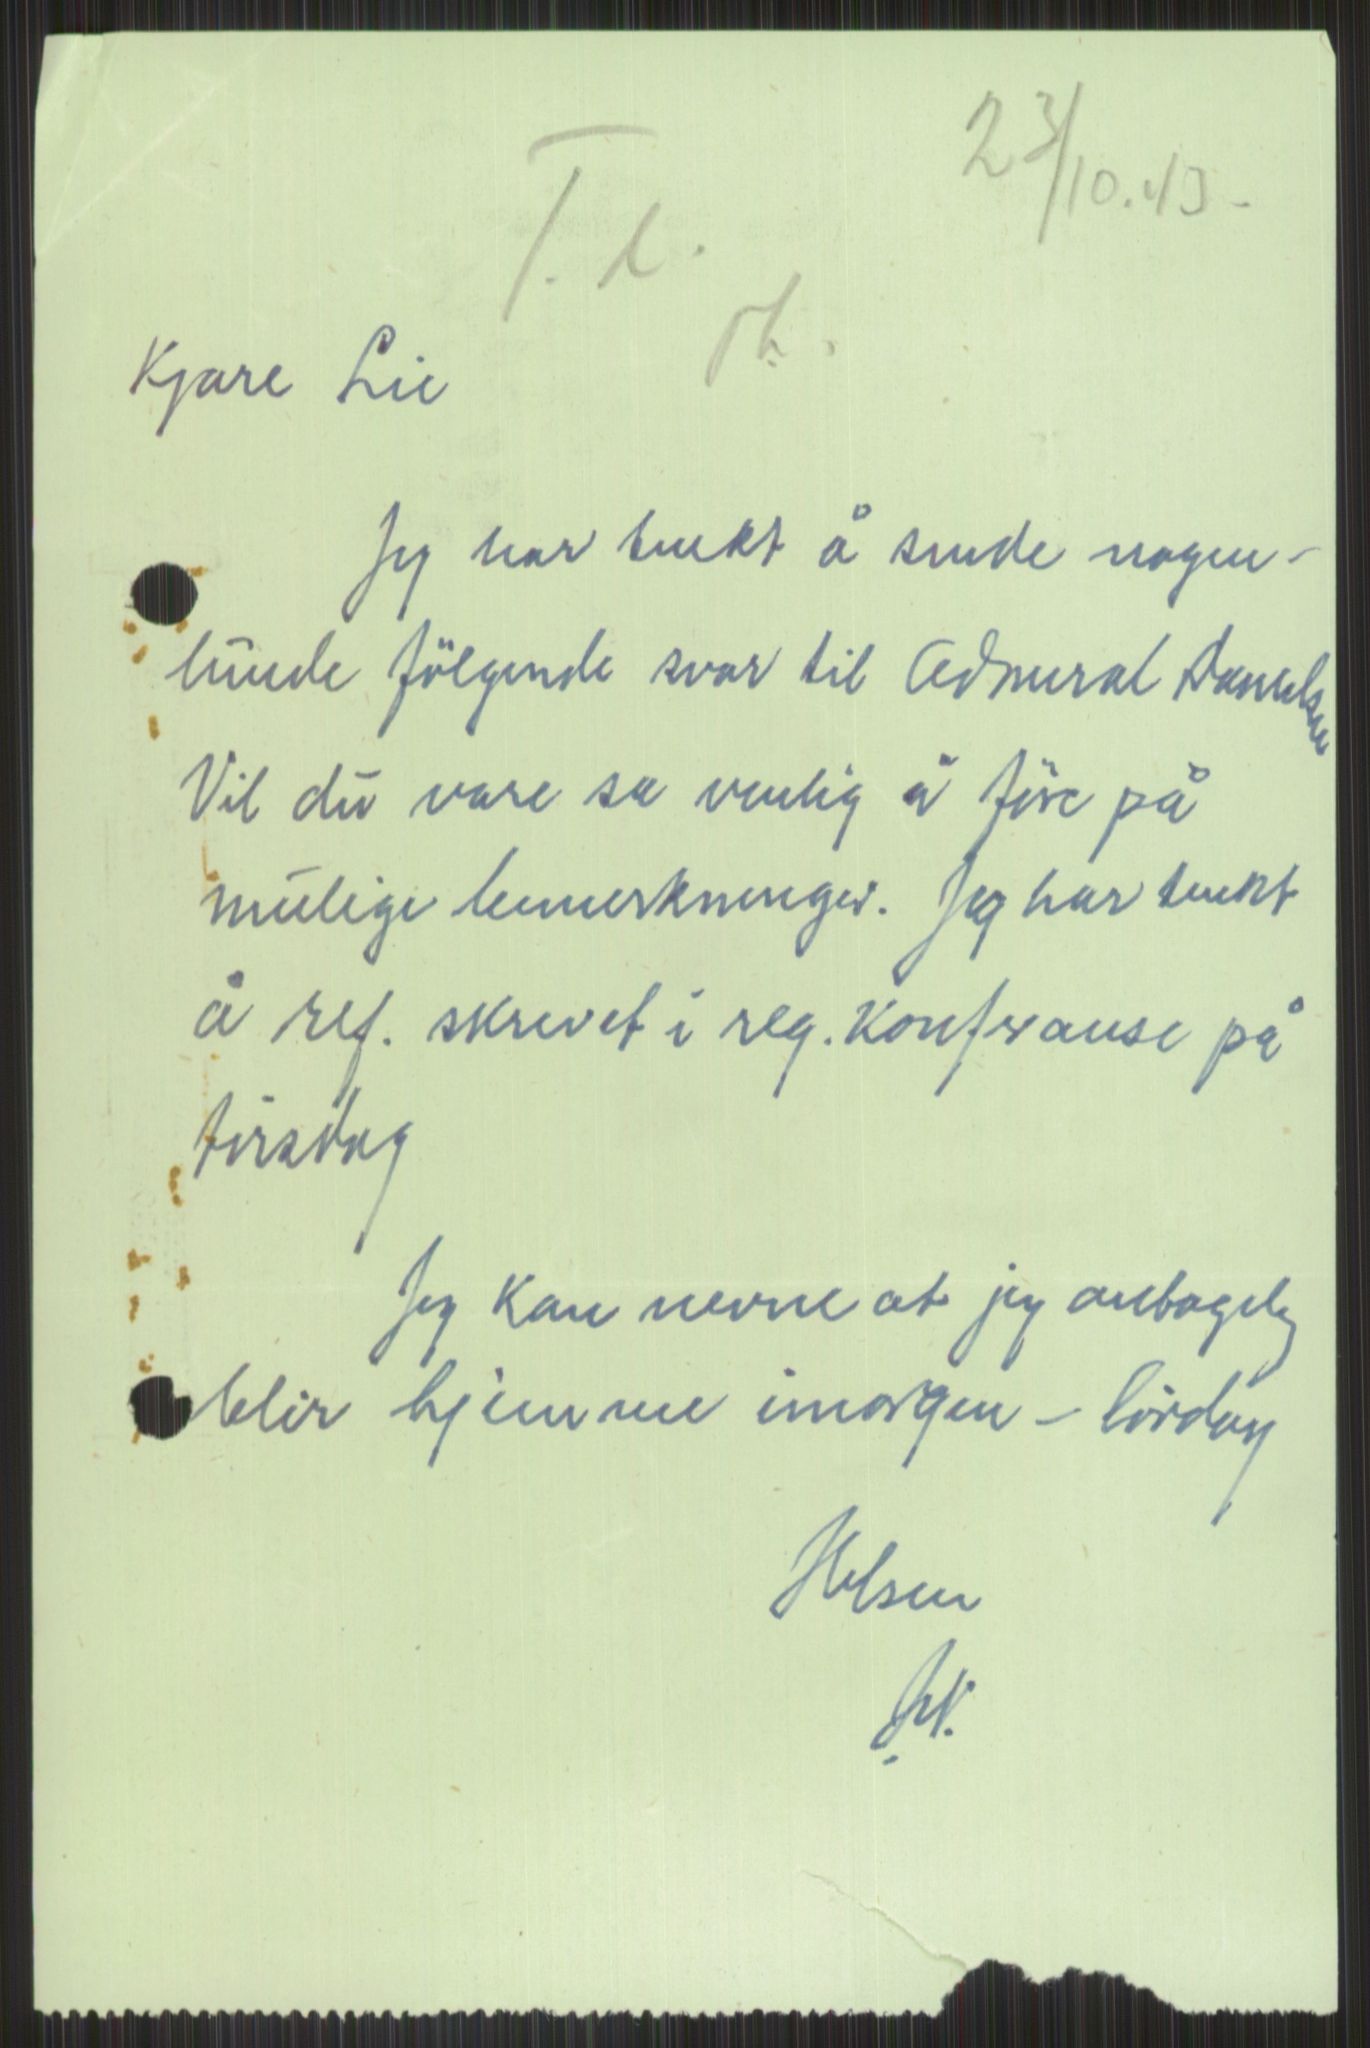 23/10.43-
T. L.
Kjære Lie
Jeg har tenkt å sende nogen-
lunde følgende svar til Admiral Danielsen
Vil du være så venlig å före på
mulige bemerkninger. Jeg har tenkt
å ref. skrevet i reg. konferanse på
tirsdag
Jeg kan nevne at jeg antagelig
blir hjemme imorgen - lördag
Hilsen